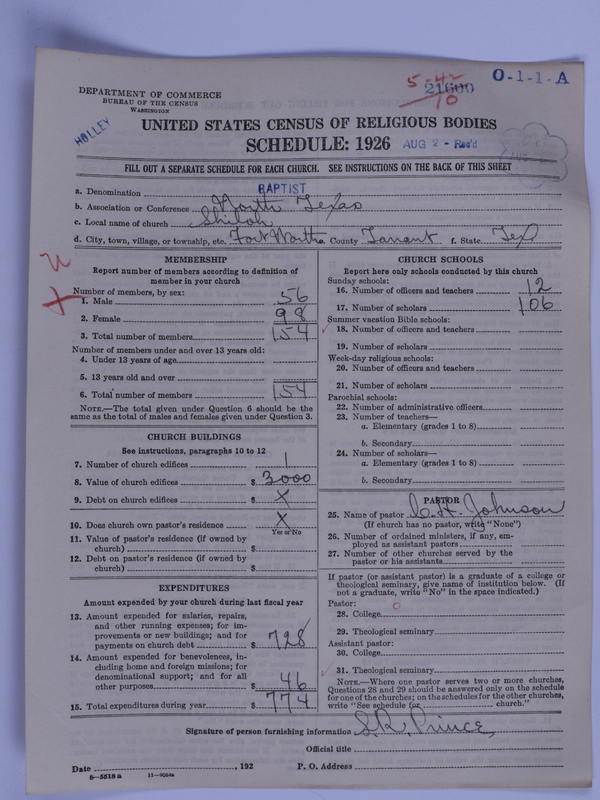 DEPARTMENT OF COMMERCE
BUREAU OF THE CENSUS
WASHINGTON
HOLLEY
5-42
10
21600
O-1-1-A
UNITED STATES CENSUS OF RELIGIOUS BODIES
SCHEDULE: 1926
AUG 2 - Rec'd
FILL OUT A SEPARATE SCHEDULE FOR EACH CHURCH. SEE INSTRUCTIONS ON THE BACK OF THIS SHEET
a. Denomination BAPTIST
b. Association or Conference North Texas
c. Local name of church Shiloh
d. City, town, village, or township, etc. Fort Worth e. County Tarrant f. State Tex
MEMBERSHIP
Report number of members according to definition of
member in your church
Number of members, by sex:
1. Male 56
2. Female 98
3. Total number of members 154
Number of members under and over 13 years old:
4. Under 13 years of age
5. 13 years old and over
6. Total number of members 154
NOTE.—The total given under Question 6 should be the
same as the total of males and females given under Question 3.
CHURCH BUILDINGS
See instructions, paragraphs 10 to 12
7. Number of church edifices 1
8. Value of church edifices $ 3000
9. Debt on church edifices $ X
10. Does church own pastor's residence X
Yes or No
11. Value of pastor's residence (if owned by
church) $
12. Debt on pastor's residence (if owned by
church) $
EXPENDITURES
Amount expended by your church during last fiscal year
13. Amount expended for salaries, repairs,
and other running expenses; for im-
provements or new buildings; and for
payments on church debt $ 728
14. Amount expended for benevolences, in-
cluding home and foreign missions; for
denominational support; and for all
other purposes $ 46
15. Total expenditures during year $ 774
CHURCH SCHOOLS
Report here only schools conducted by this church
Sunday schools:
16. Number of officers and teachers 12
17. Number of scholars 106
Summer vacation Bible schools:
18. Number of officers and teachers
19. Number of scholars
Week-day religious schools:
20. Number of officers and teachers
21. Number of scholars
Parochial schools:
22. Number of administrative officers
23. Number of teachers—
a. Elementary (grades 1 to 8)
b. Secondary
24. Number of scholars—
a. Elementary (grades 1 to 8)
b. Secondary
PASTOR
25. Name of pastor C. H. Johnson
(If church has no pastor, write "None")
26. Number of ordained ministers, if any, em-
ployed as assistant pastors
27. Number of other churches served by the
pastor or his assistants
If pastor (or assistant pastor) is a graduate of a college or
theological seminary, give name of institution below. (If
not a graduate, write "No" in the space indicated.)
Pastor:
28. College
29. Theological seminary
Assistant pastor:
30. College
31. Theological seminary
NOTE.—Where one pastor serves two or more churches,
Questions 28 and 29 should be answered only on the schedule
for one of the churches; on the schedules for the other churches,
write "See schedule for church."
Signature of person furnishing information S. R. Prince
Official title
Date , 192 P. O. Address
8—5518 a 11—9054a